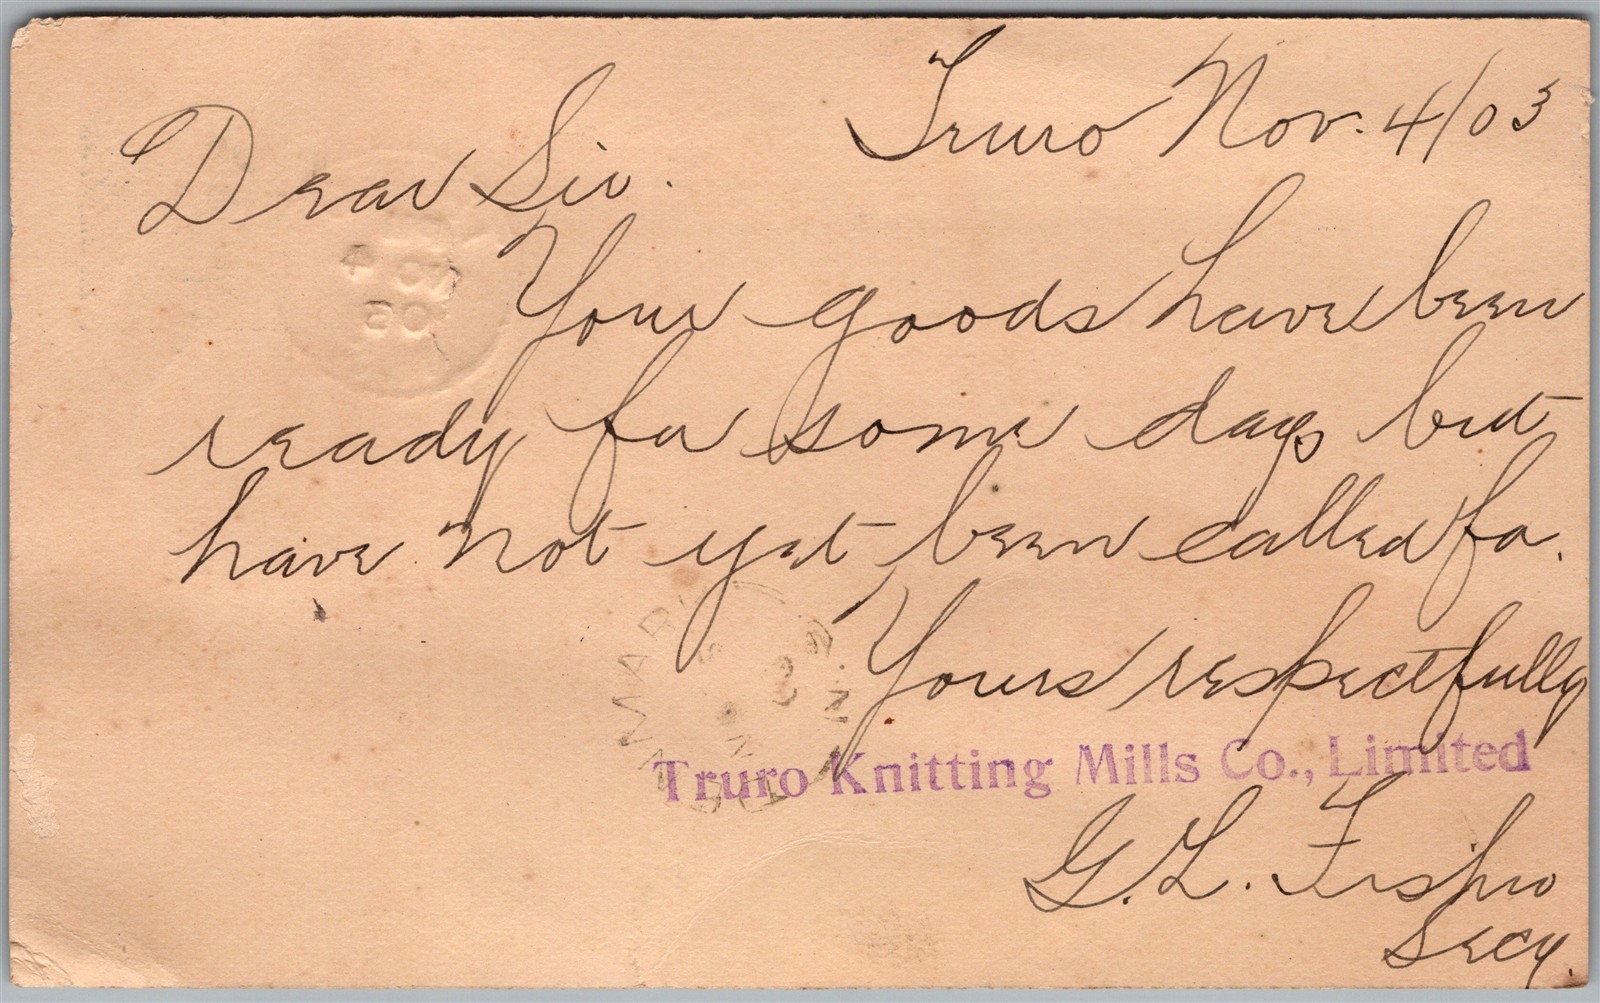 Truro Nov. 4/03
Dear Sir.
Your goods have been
ready for some days but
have not yet been called for.
Yours respectfully
Truro Knitting Mills Co., Limited
G. L. Fisher
Secy.
NO 4
03